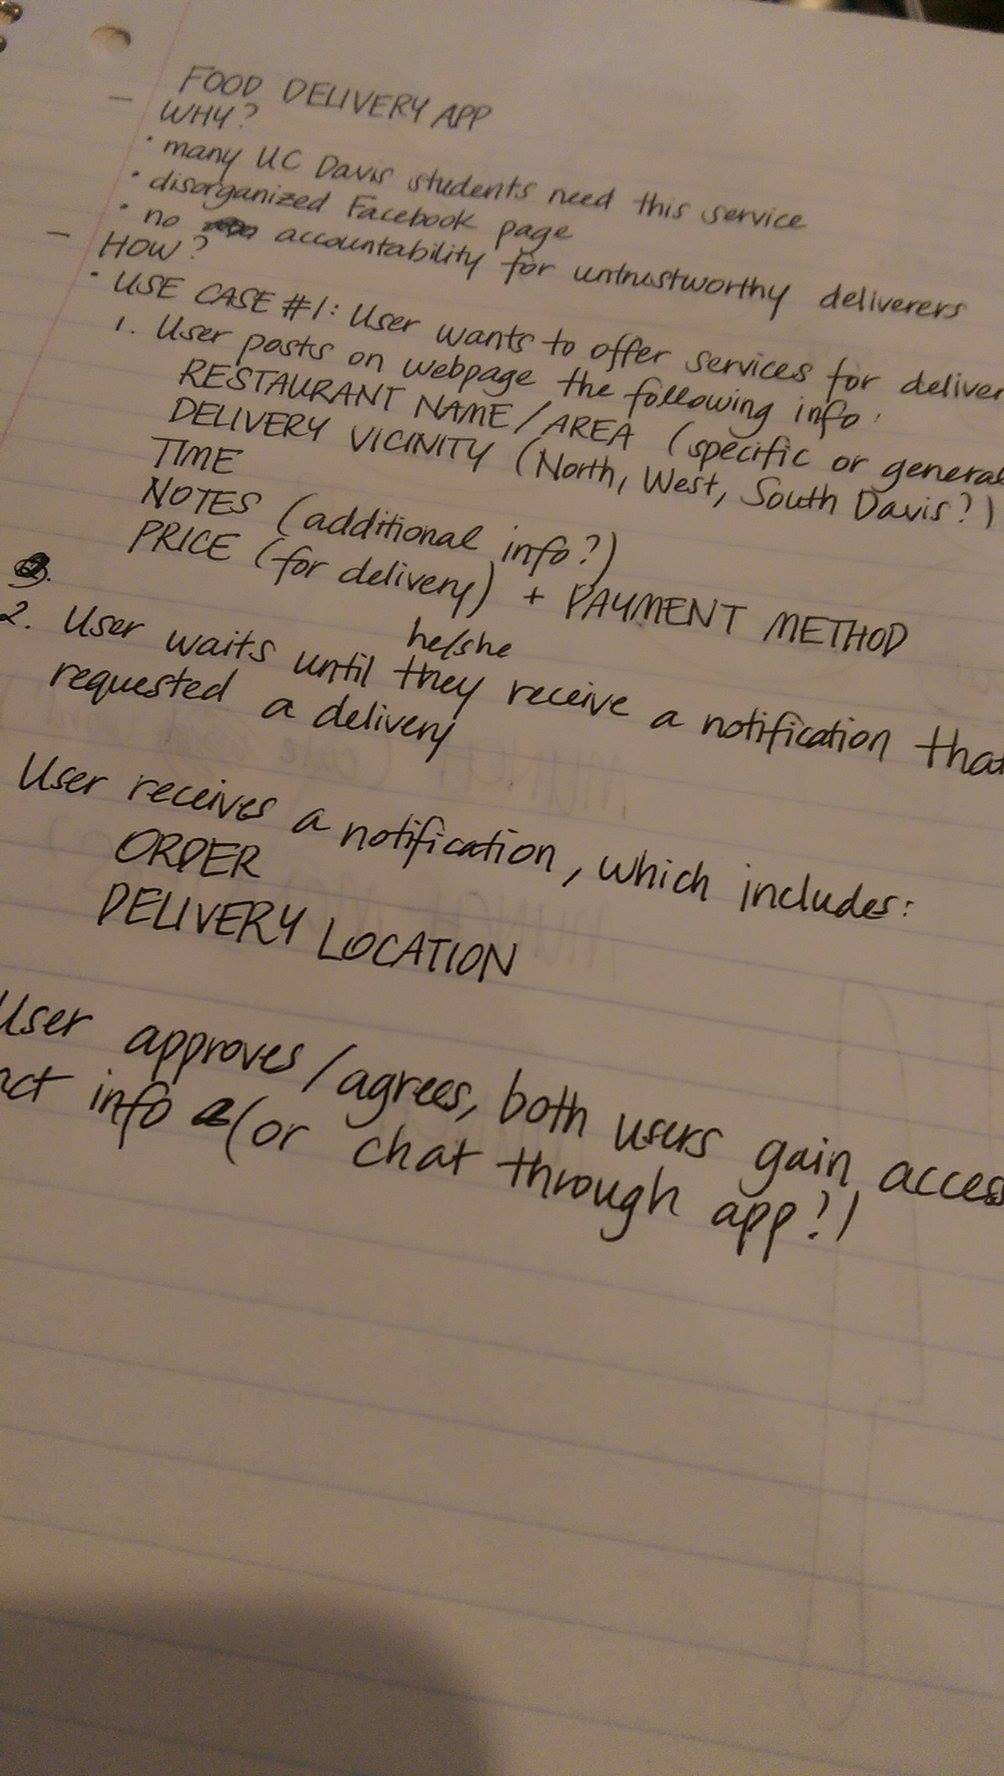 FOOD DELIVERY APP
- WHY?
• many UC Davis students need this service
• disorganized Facebook page
• no accountability for untrustworthy deliverers
- HOW?
• USE CASE #1: User wants to offer services for deliver
1. User posts on webpage the following info:
RESTAURANT NAME/AREA (specific or general
DELIVERY VICINITY (North, West, South Davis?)
TIME
NOTES (additional info?)
PRICE (for delivery) + PAYMENT METHOD
he/she
2. User waits until they receive a notification that
requested a delivery
User receives a notification, which includes:
ORDER
DELIVERY LOCATION
User approves/agrees, both users gain acces
act info (or chat through app?)